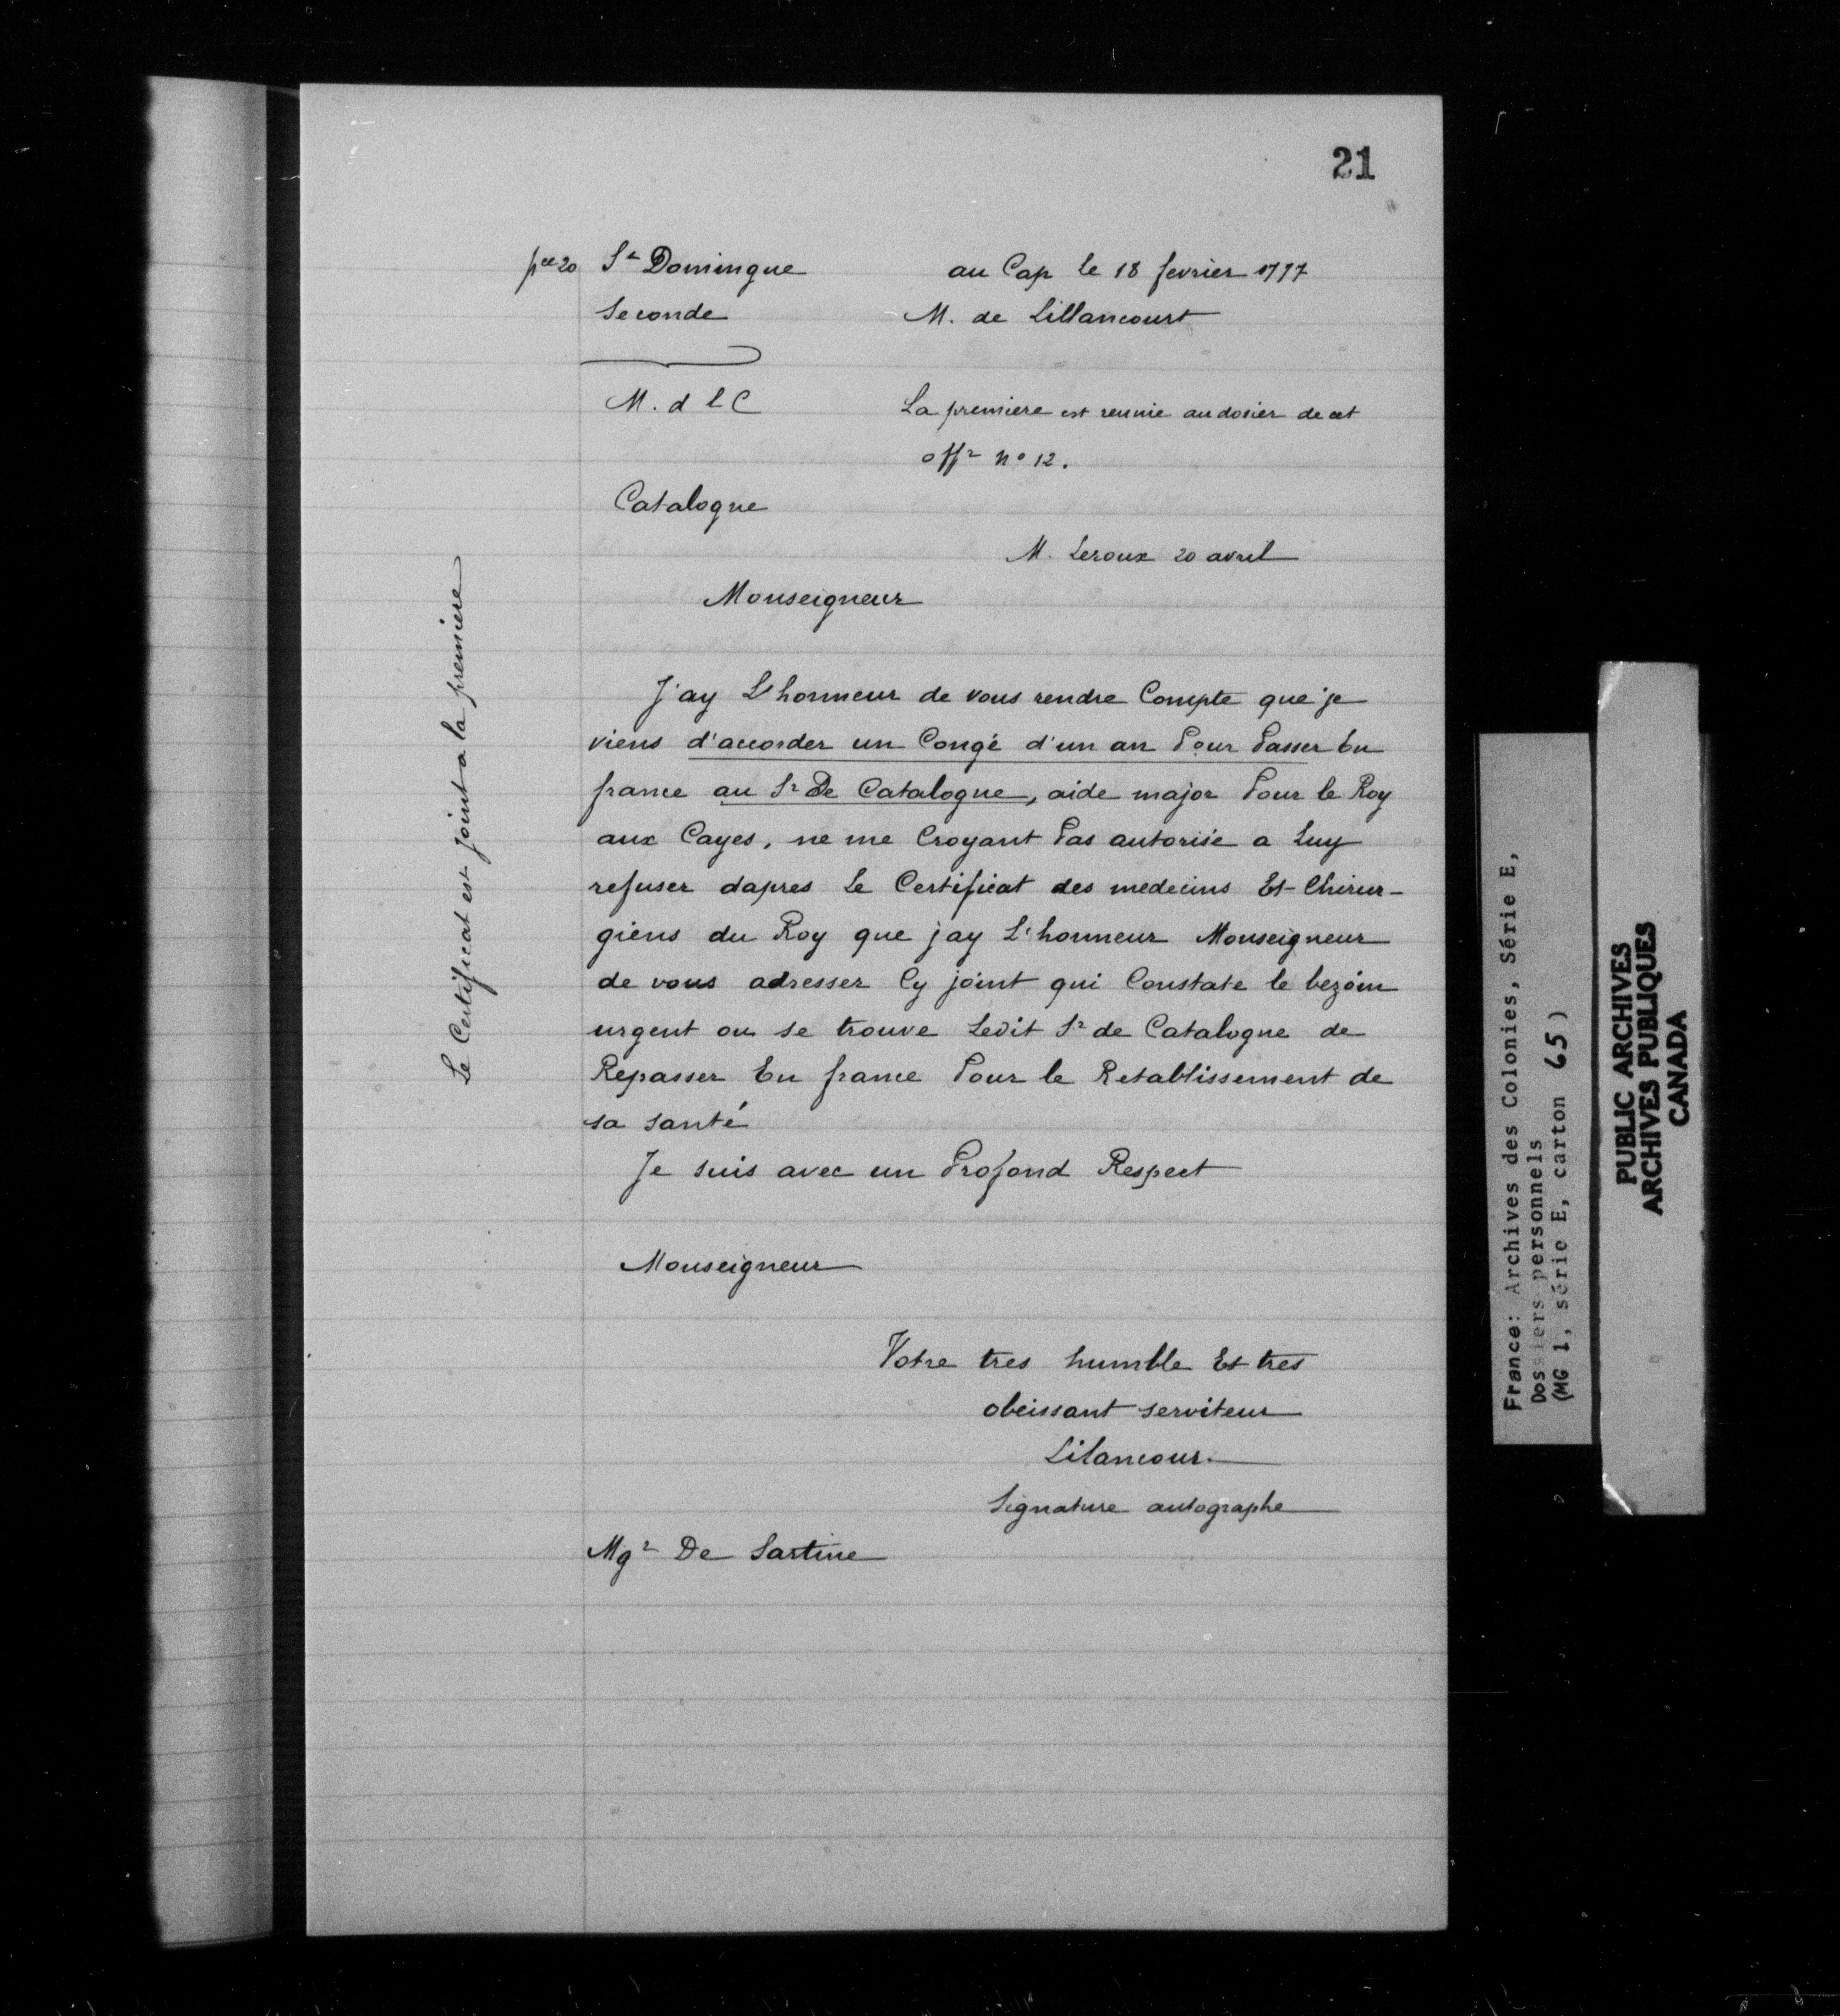 21
pce 20 St Domingue au Cap le 18 fevrier 1777
Seconde M. de Lillancourt
M. d l C La premiere est reunie au dosier de cet
offr no 12.
Catalogne
M. Leroux 20 avril
Monseigneur
J'ay L'honneur de vous rendre Compte que je
viens d'accorder un Congé d'un an Pour Passer En
france au Sr De Catalogne, aide major Pour le Roy
aux Cayes, ne me Croyant Pas autorisé a Luy
refuser dapres Le Certificat des medecins Et Chirur-
giens du Roy que jay L'honneur Monseigneur
de vous adresser Cy joint qui Constate le bezoin
urgent ou se trouve Ledit Sr de Catalogne de
Repasser En france Pour le Retablissement de
sa santé
Je suis avec un Profond Respect
Monseigneur
Votre tres humble Et tres
obeissant serviteur
Lilancour.
Signature autographe
Mgr De Sartine
Le Certificat est joint a la premiere
France: Archives des Colonies, Série E,
Dossiers personnels
(MG 1, série E, carton 65)
PUBLIC ARCHIVES
ARCHIVES PUBLIQUES
CANADA